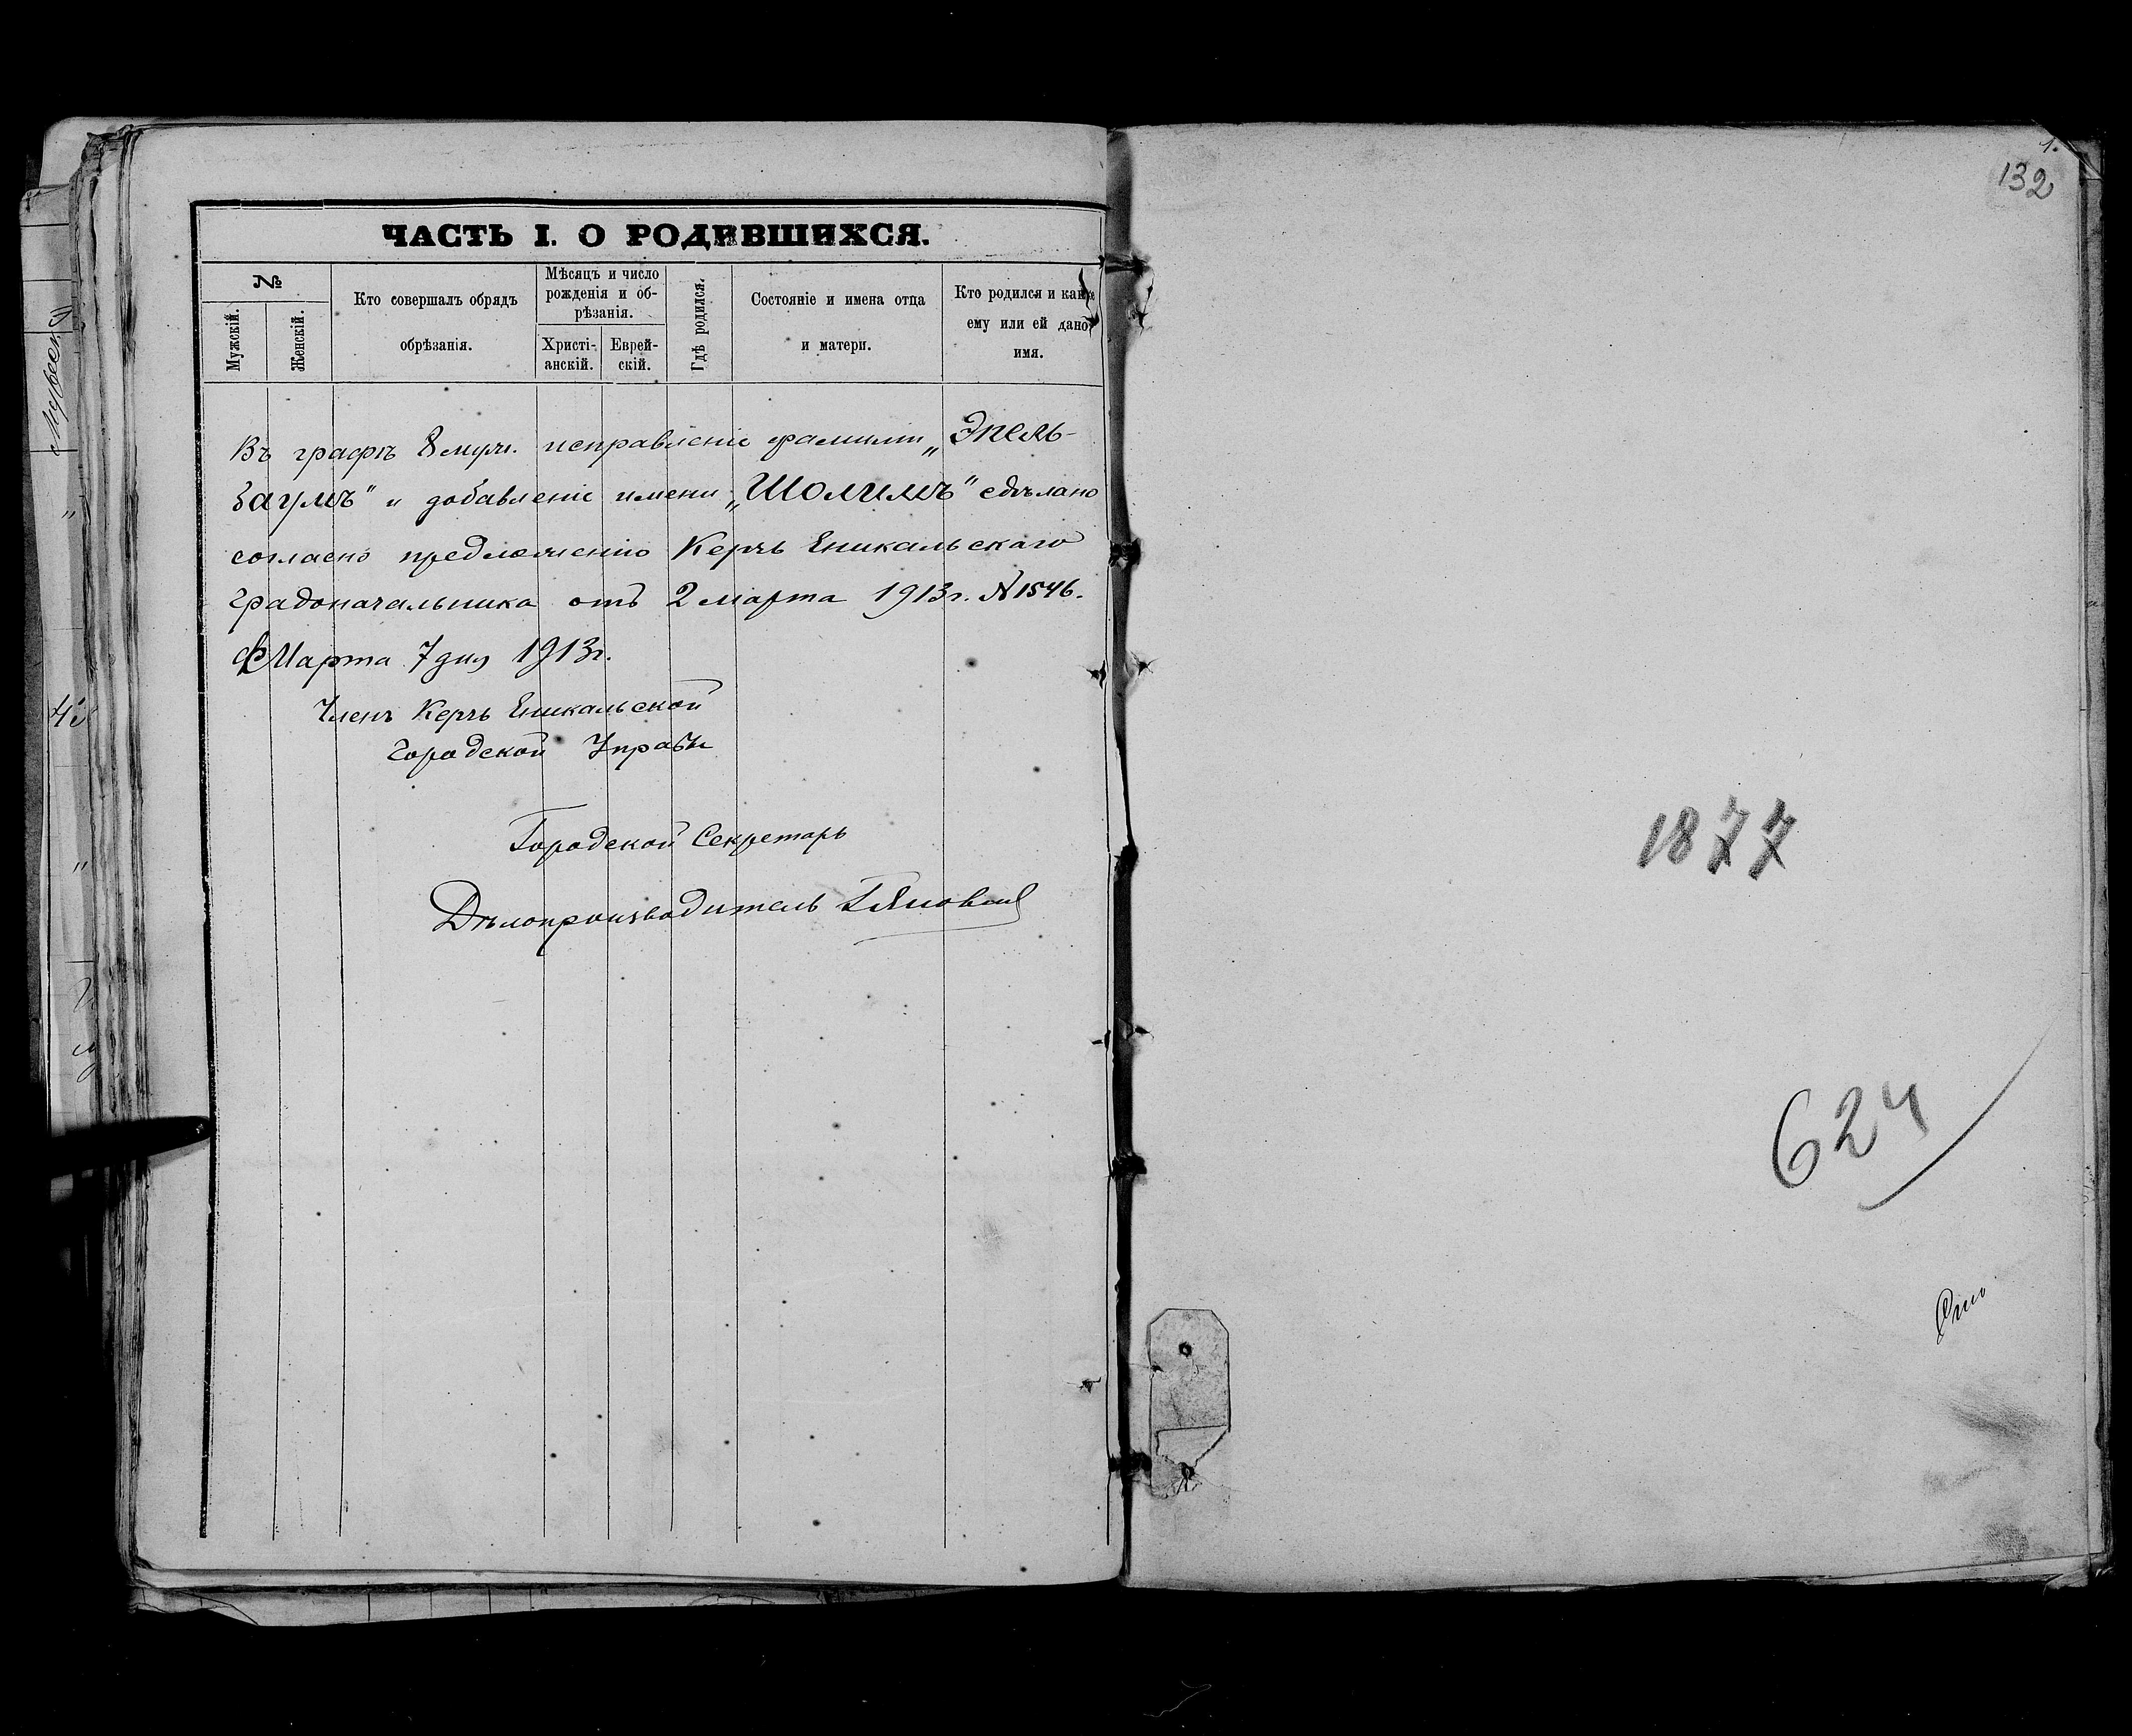 ЧАСТЬ I. О РОДИВШИХСЯ.
№
Мужскій.
Женскій.
Кто совершалъ обрядъ
обрѣзанія.
Мѣсяцъ и число
рожденія и об-
рѣзанія.
Христі-
анскій.
Еврей-
скій.
Гдѣ родился.
Состояніе и имена отца
и матери.
Кто родился и какое
ему или ей дано
имя.
Въ графѣ 8 муж. исправленіе фамиліи „Эпель-
баумъ" и добавленіе имени „Шолимъ" сдѣлано
согласно предложенію Керчь Еникальскаго
Градоначальника отъ 2 марта 1913 г. № 1546.
Марта 7 дня 1913 г.
Членъ Керчь Еникальской
Городской Управы
Городской Секретарь
Дѣлопроизводитель
1.
132
1877
624